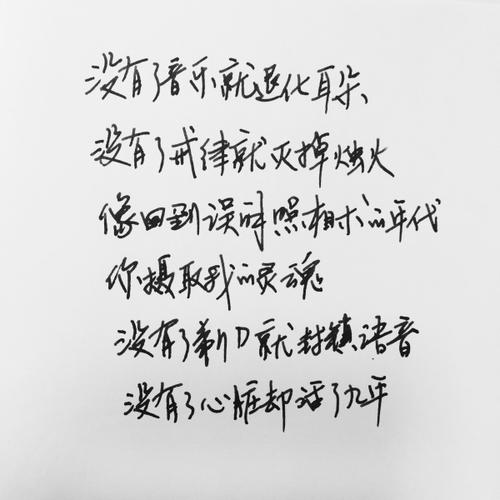 没有了音乐就退化耳朵
没有了戒律就灭掉烛火
像回到误解照相术的年代
你摄取我的灵魂
没有了剃刀就封锁语音
没有了心脏却活了九年